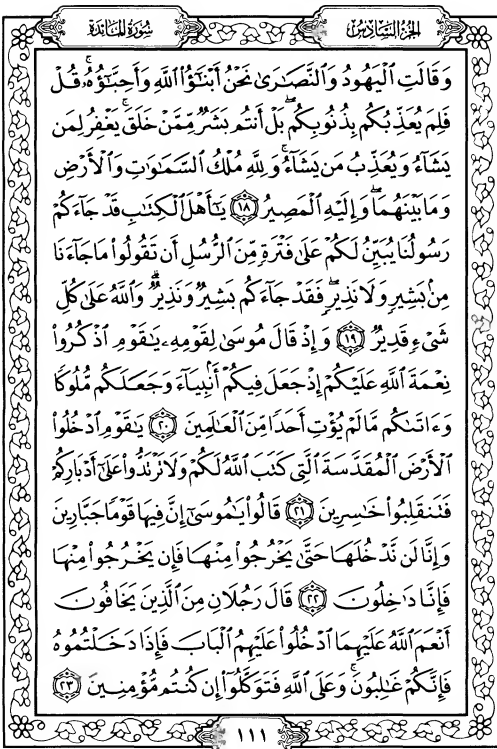 سُورَةُ المَائدة
الجُزءُ السَّادِسُ
وَقَالَتِ الْيَهُودُ وَالنَّصَارَىٰ نَحْنُ أَبْنَاؤُا اللَّهِ وَأَحِبَّاؤُهُۚ قُلْ
فَلِمَ يُعَذِّبُكُم بِذُنُوبِكُمۖ بَلْ أَنتُم بَشَرٌ مِّمَّنْ خَلَقَۚ يَغْفِرُ لِمَن
يَشَآءُ وَيُعَذِّبُ مَن يَشَآءُۚ وَلِلَّهِ مُلْكُ السَّمَاوَاتِ وَالْأَرْضِ
وَمَا بَيْنَهُمَاۖ وَإِلَيْهِ الْمَصِيرُ ١٨ يَا أَهْلَ الْكِتَابِ قَدْ جَآءَكُمْ
رَسُولُنَا يُبَيِّنُ لَكُمْ عَلَىٰ فَتْرَةٍ مِّنَ الرُّسُلِ أَن تَقُولُوا مَا جَآءَنَا
مِن بَشِيرٍ وَلَا نَذِيرٍۖ فَقَدْ جَآءَكُم بَشِيرٌ وَنَذِيرٌۗ وَاللَّهُ عَلَىٰ كُلِّ
شَىْءٍ قَدِيرٌ ١٩ وَإِذْ قَالَ مُوسَىٰ لِقَوْمِهِ يَاقَوْمِ اذْكُرُوا
نِعْمَةَ اللَّهِ عَلَيْكُمْ إِذْ جَعَلَ فِيكُمْ أَنبِيَآءَ وَجَعَلَكُم مُّلُوكًا
وَءَاتَىٰكُم مَّا لَمْ يُؤْتِ أَحَدًا مِّنَ الْعَالَمِينَ ٢٠ يَاقَوْمِ ادْخُلُوا
الْأَرْضَ الْمُقَدَّسَةَ الَّتِى كَتَبَ اللَّهُ لَكُمْ وَلَا تَرْتَدُّوا عَلَىٰ أَدْبَارِكُمْ
فَتَنقَلِبُوا خَاسِرِينَ ٢١ قَالُوا يَامُوسَىٰ إِنَّ فِيهَا قَوْمًا جَبَّارِينَ
وَإِنَّا لَن نَّدْخُلَهَا حَتَّىٰ يَخْرُجُوا مِنْهَا فَإِن يَخْرُجُوا مِنْهَا
فَإِنَّا دَاخِلُونَ ٢٢ قَالَ رَجُلَانِ مِنَ الَّذِينَ يَخَافُونَ
أَنْعَمَ اللَّهُ عَلَيْهِمَا ادْخُلُوا عَلَيْهِمُ الْبَابَ فَإِذَا دَخَلْتُمُوهُ
فَإِنَّكُمْ غَالِبُونَۚ وَعَلَى اللَّهِ فَتَوَكَّلُوا إِن كُنتُم مُّؤْمِنِينَ ٢٣
١١١